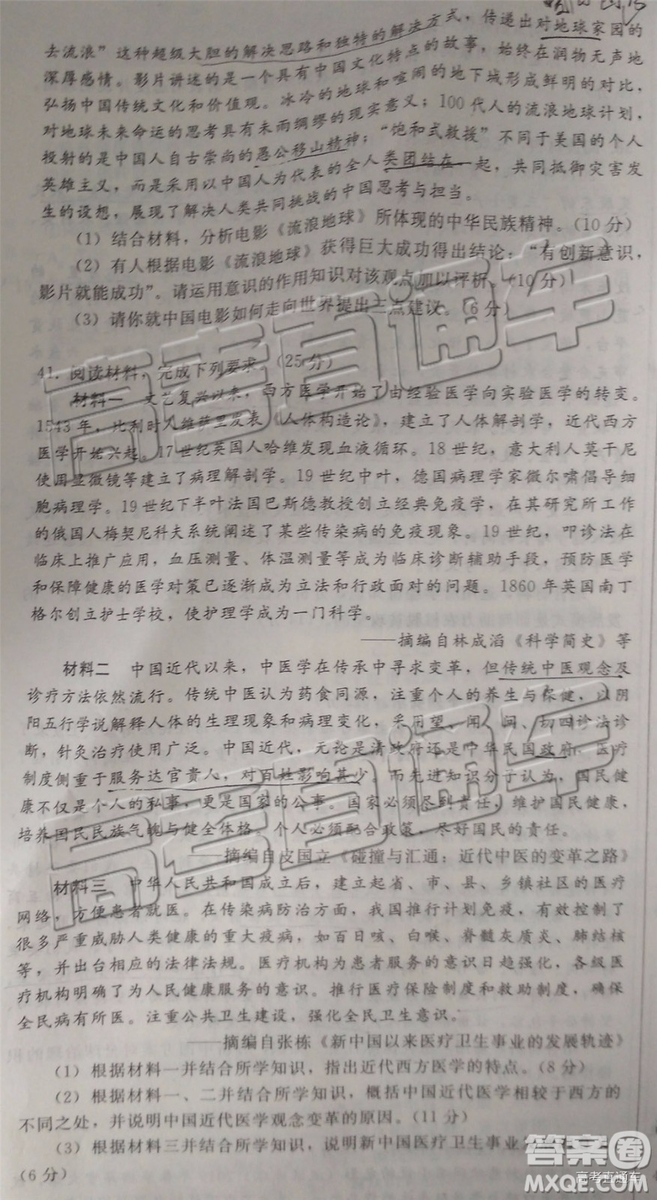 去流浪”这种超级大胆的解决思路和独特的解决方式，传递出对地球家园的
深厚感情。影片讲述的是一个具有中国文化特点的故事，始终在润物无声地
弘扬中国传统文化和价值观。冰冷的地球和喧闹的地下城形成鲜明的对比，
对地球未来命运的思考具有未雨绸缪的现实意义；100代人的流浪地球计划，
投射的是中国人自古崇尚的愚公移山精神；“饱和式救援”不同于美国的个人
英雄主义，而是采用以中国人为代表的全人类团结在一起，共同抵御灾害发
生的设想，展现了解决人类共同挑战的中国思考与担当。
（1）结合材料，分析电影《流浪地球》所体现的中华民族精神。（10分）
（2）有人根据电影《流浪地球》获得巨大成功得出结论：“有创新意识，
影片就能成功”。请运用意识的作用知识对该观点加以评析。（10分）
（3）请你就中国电影如何走向世界提出三点建议。（6分）
41．阅读材料，完成下列要求。（25分）
材料一　文艺复兴以来，西方医学开始了由经验医学向实验医学的转变。
1543年，比利时人维萨里发表《人体构造论》，建立了人体解剖学，近代西方
医学开始兴起。17世纪英国人哈维发现血液循环。18世纪，意大利人莫干尼
使用显微镜等建立了病理解剖学。19世纪中叶，德国病理学家微尔啸倡导细
胞病理学。19世纪下半叶法国巴斯德教授创立经典免疫学，在其研究所工作
的俄国人梅契尼科夫系统阐述了某些传染病的免疫现象。19世纪，叩诊法在
临床上推广应用，血压测量、体温测量等成为临床诊断辅助手段，预防医学
和保障健康的医学对策已逐渐成为立法和行政面对的问题。1860年英国南丁
格尔创立护士学校，使护理学成为一门科学。
——摘编自林成滔《科学简史》等
材料二　中国近代以来，中医学在传承中寻求变革，但传统中医观念及
诊疗方法依然流行。传统中医认为药食同源，注重个人的养生与保健，以阴
阳五行学说解释人体的生理现象和病理变化，采用望、闻、问、切四诊法诊
断，针灸治疗使用广泛。中国近代，无论是清政府还是中华民国政府，医疗
制度侧重于服务达官贵人，对百姓影响甚少。而先进知识分子认为，国民健
康不仅是个人的私事，更是国家的公事。国家必须尽到责任，维护国民健康，
培养国民民族气魄与健全体格，个人必须配合政策，尽好国民的责任。
——摘编自皮国立《碰撞与汇通：近代中医的变革之路》
材料三　中华人民共和国成立后，建立起省、市、县、乡镇社区的医疗
网络，方便患者就医。在传染病防治方面，我国推行计划免疫，有效控制了
很多严重威胁人类健康的重大疫病，如百日咳、白喉、脊髓灰质炎、肺结核
等，并出台相应的法律法规。医疗机构为患者服务的意识日趋强化，各级医
疗机构明确了为人民健康服务的意识。推行医疗保险制度和救助制度，确保
全民病有所医。注重公共卫生建设，强化全民卫生意识。
——摘编自张栋《新中国以来医疗卫生事业的发展轨迹》
（1）根据材料一并结合所学知识，指出近代西方医学的特点。（8分）
（2）根据材料一、二并结合所学知识，概括中国医学相较于西方的
不同之处，并说明中国近代医学观念变革的原因。（11分）
（3）根据材料三并结合所学知识，说明新中国医疗卫生事业
（6分）
高考直通车
高考直通车
答案圈
MXQE.COM
高考直通车